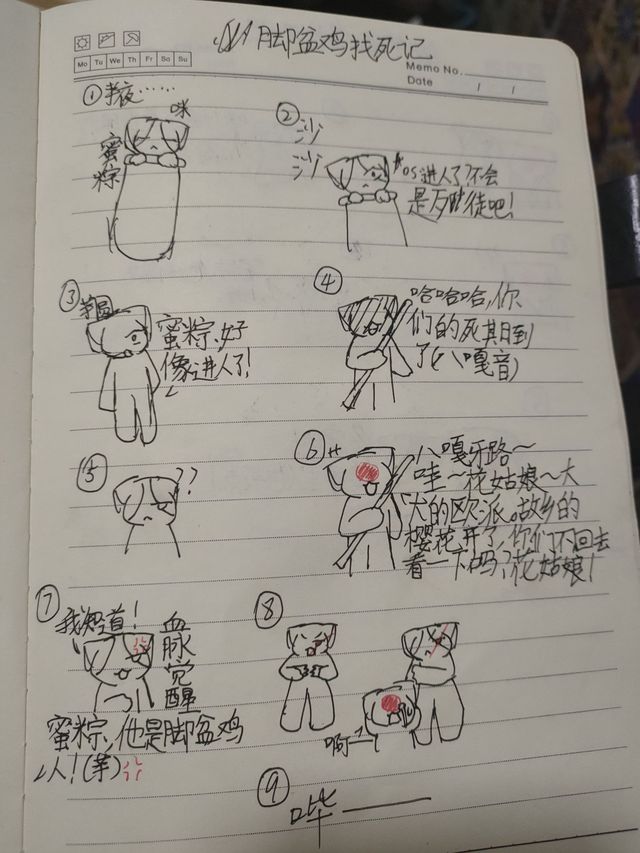 脚盆鸡找死记
Mo Tu We Th Fr Sa Su
Memo No.
Date / /
① 半夜……
咪
蜜粽
②
沙
沙
os进人了不会
是歹徒吧！
③
蜜粽、好
像进人了！
④
哈哈哈，你
们的死期到
了(八嘎音)
⑤
??
⑥
八嘎牙路~
哇~花姑娘~大
大的欧派。故乡的
樱花开了，你们不回去
看一下吗？花姑娘！
⑦
我知道！
血脉觉醒
蜜粽、他是脚盆鸡
人！(羊)
⑧
啊——
⑨
哔——